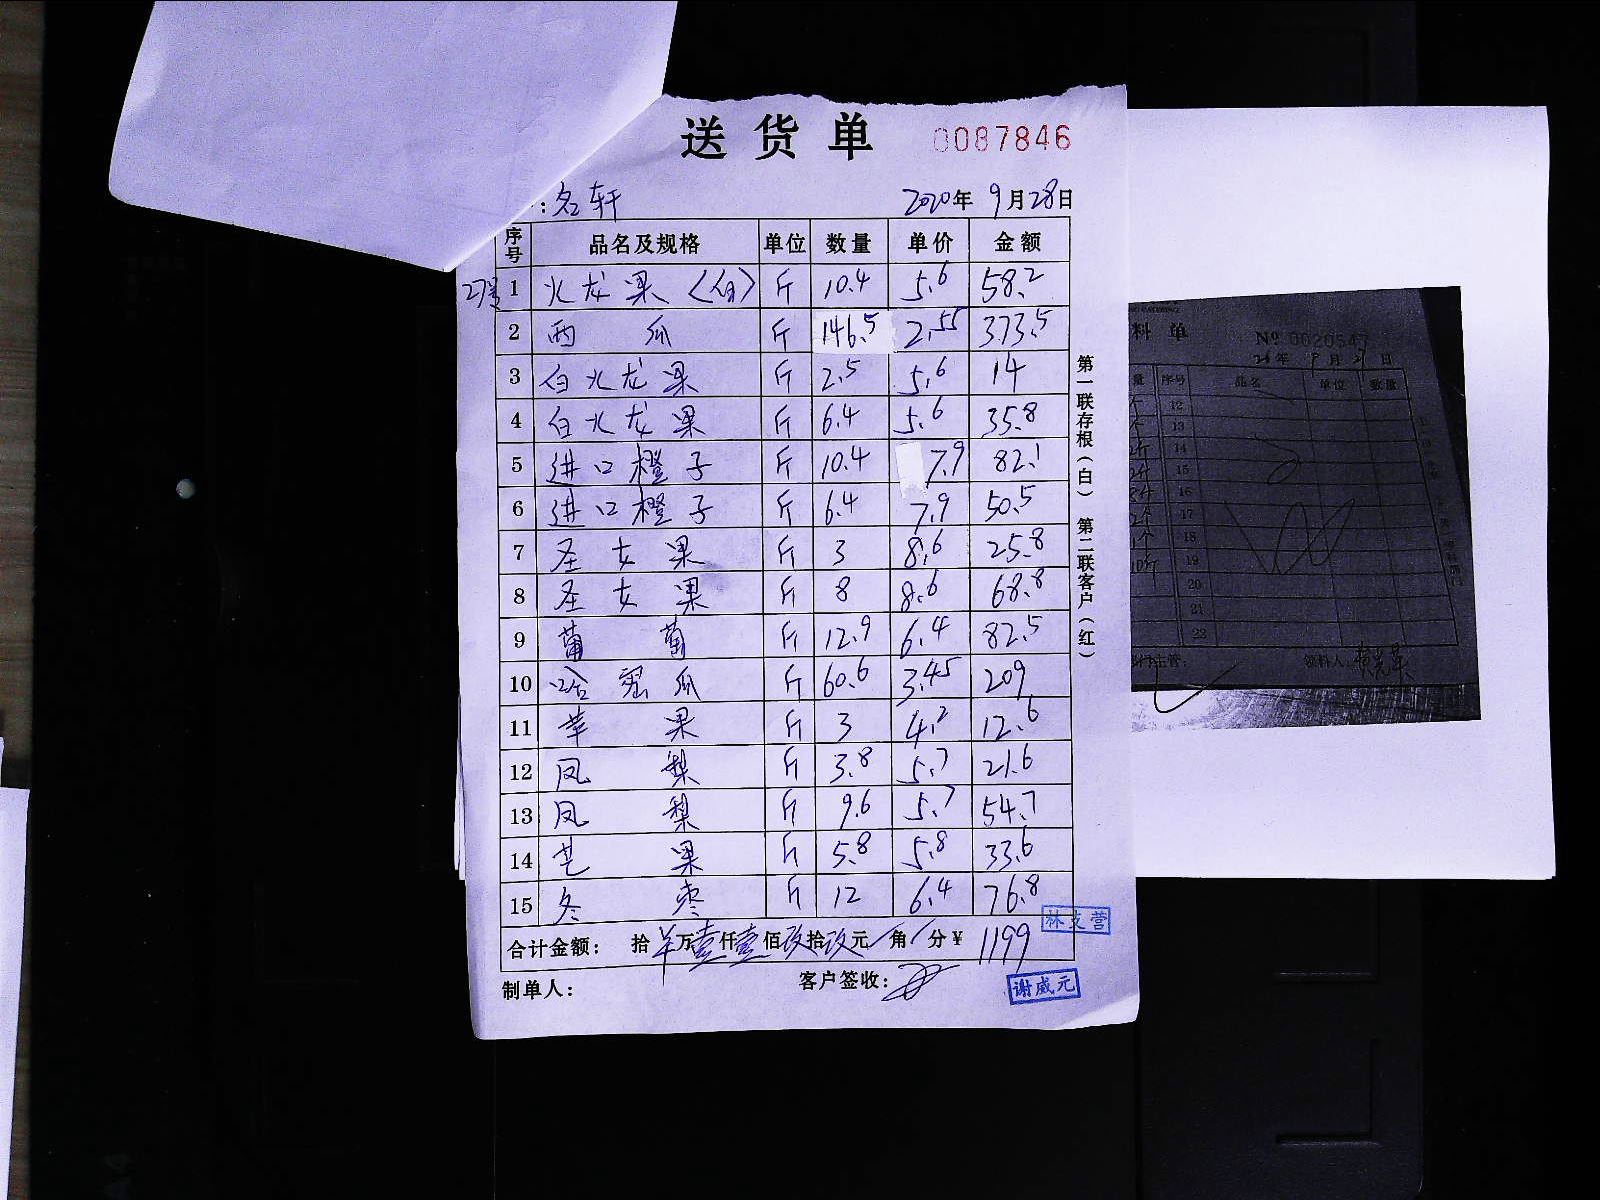 送货单 0087846
：名轩 2020年9月28日
序号 品名及规格 单位 数量 单价 金额
27号 1 火龙果（白） 斤 10.4 5.6 58.2
2 西瓜 斤 146.5 2.55 373.5
3 白火龙果 斤 2.5 5.6 14
4 白火龙果 斤 6.4 5.6 35.8
5 进口橙子 斤 10.4 7.9 82.1
6 进口橙子 斤 6.4 7.9 50.5
7 圣女果 斤 3 8.6 25.8
8 圣女果 斤 8 8.6 68.8
9 葡萄 斤 12.9 6.4 82.5
10 哈密瓜 斤 60.6 3.45 209
11 苹果 斤 3 4.2 12.6
12 凤梨 斤 3.8 5.7 21.6
13 凤梨 斤 9.6 5.7 54.7
14 芒果 斤 5.8 5.8 33.6
15 冬枣 斤 12 6.4 76.8
合计金额： 拾 万壹仟壹佰玖拾玖元/角/分￥ 1199
林支营
制单人： 客户签收： 谢威元
第一联存根（白） 第二联客户（红）
料单 Nº 0020547
年 月 日
量 序号 品名 单位 数量
12
13
14
15
16
17
18
19
20
21
22
部门主管： 领料人：